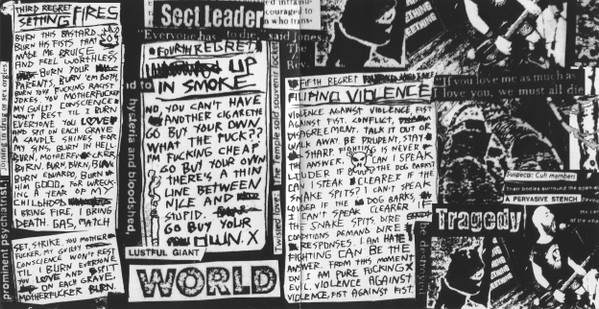 THIRD REGRET
SETTING FIRES
BURN THIS BASTARD,
BURN HIS FISTS THAT
MADE ME BRUISE
AND FEEL WORTHLESS
BURN YOUR
PARENTS, BURN 'EM BOTH,
BURN YOUR FUCKING RACIST
JOKES. YOU MOTHERFUCKER
MY GUILTY CONSCIENCE
WON'T REST TIL I BURN
EVERYONE YOU LOVE
AND SPIT ON EACH GRAVE
A CANDLE SHINES FOR
MY SINS. BURN IN HELL
BURN, MOTHERFUCKER
BURN, BURN, BURN, BURN
BURN EDUARD, BURN
HIM GOOD, FOR WRECK-
ING A YEAR OF MY
CHILDHOOD
I BRING FIRE, I BRING
DEATH. GAS, MATCH
SET, STRIKE, YOU MOTHER-
FUCKER, MY GUILTY
CONSCIENCE WON'T REST
TIL I BURN EVERYONE
YOU LOVE AND SPIT
ON EACH GRAVE.
MOTHERFUCKER BURN.
prominent psychiatrist.
joining in drug
sex orgies
Sect Leader
Everyone has to die, said Jones
FOURTH REGRET
UP
IN SMOKE
NO, YOU CAN'T HAVE
ANOTHER CIGARETTE
GO BUY YOUR OWN
WHAT THE FUCK??
I'M FUCKING CHEAP
GO BUY YOUR OWN
THERE'S A THIN
LINE BETWEEN
NICE AND
STUPID.
GO BUY YOUR
OWN. X
d to
hysteria and bloodshed.
LUSTFUL GIANT
WORLD
the Temple sold souvenir locket
Twisted love
encouraged to
n who trans-
The
Rev.
FIFTH REGRET
FILING VIOLENCE
VIOLENCE AGAINST VIOLENCE, FIST
AGAINST FIST. CONFLICT,
DISAGREEMENT. TALK IT OUT OR
WALK AWAY. BE PRUDENT, STAY
SHARP. FIGHTING IS NEVER
THE ANSWER. CAN I SPEAK
LOUDER IF THE DOG BARKS?
CAN I SPEAK CLEARER IF THE
SNAKE SPITS? I CAN'T SPEAK
LOUDER IF THE DOG BARKS,
I CAN'T SPEAK CLEARER IF
THE SNAKE SPITS. DIRE
CONDITIONS DEMAND DIRE
RESPONSES. I AM HATE
FIGHTING CAN BE THE
ANSWER. FROM THIS MOMENT
ON I AM PURE FUCKING
EVIL. VIOLENCE AGAINST
VIOLENCE, FIST AGAINST FIST.
"If you love me as much as
I love you, we must all die
Cult members
Their bodies surround the
A PERVASIVE STENCH
Tragedy
be destroyed
STRONG